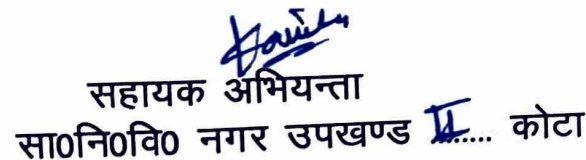 सहायक अभियन्ता
सा०नि०वि० नगर उपखण्ड II..... कोटा